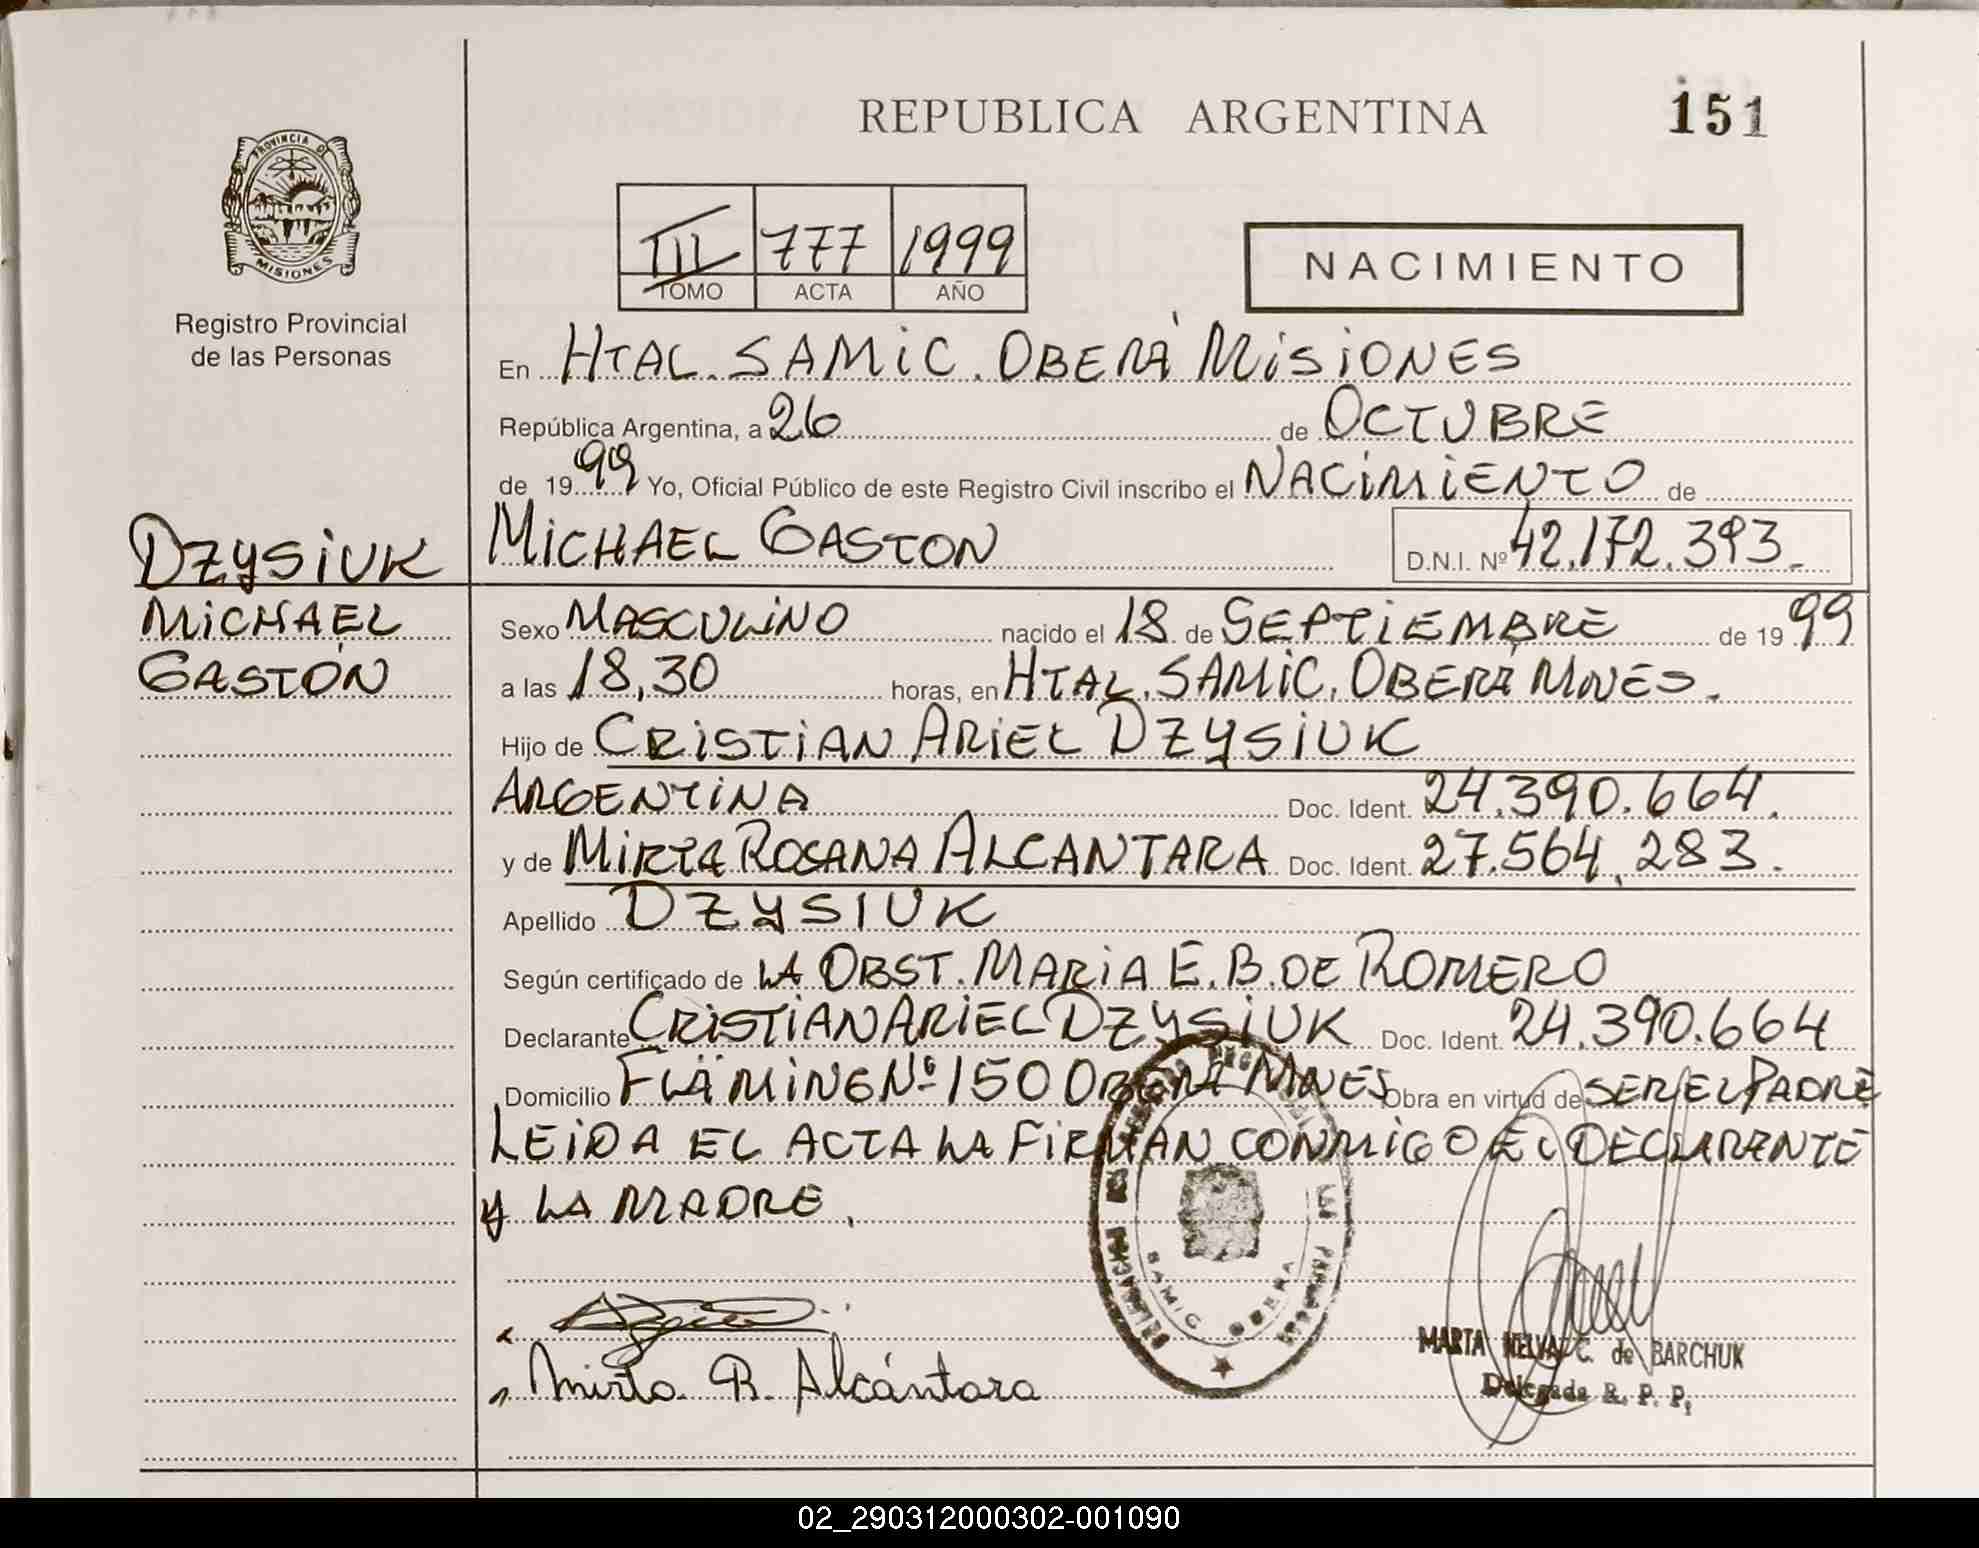 REPUBLICA ARGENTINA
151
PROVINCIA DE
MISIONES
Registro Provincial
de las Personas
III 777 1999
TOMO ACTA AÑO
NACIMIENTO
En HTAL. SAMIC. OBERÁ MISIONES
República Argentina, a 26 de OCTUBRE
de 1999 Yo, Oficial Público de este Registro Civil inscribo el NACIMIENTO de
DZYSIUK
MICHAEL GASTON D.N.I. Nº 42.172.393.
MICHAEL
GASTÓN
Sexo MASCULINO nacido el 18 de SEPTIEMBRE de 1999
a las 18,30 horas, en HTAL. SAMIC. OBERÁ MNES.
Hijo de CRISTIAN ARIEL DZYSIUK
ARGENTINA Doc. Ident. 24.390.664.
y de MIRTA ROSANA ALCANTARA Doc. Ident. 27.564.283.
Apellido DZYSIUK
Según certificado de LA OBST. MARIA E. B. DE ROMERO
Declarante CRISTIAN ARIEL DZYSIUK Doc. Ident. 24.390.664
Domicilio FLÄMING Nº 150 OBERÁ MNES Obra en virtud de SER EL PADRE
LEIDA EL ACTA LA FIRMAN CONMIGO EL DECLARANTE
Y LA MADRE.
SAMIC OBERA
Mirta R. Alcántara
MARTA NELVA C. de BARCHUK
Delegada R. P. P.
02_290312000302-001090